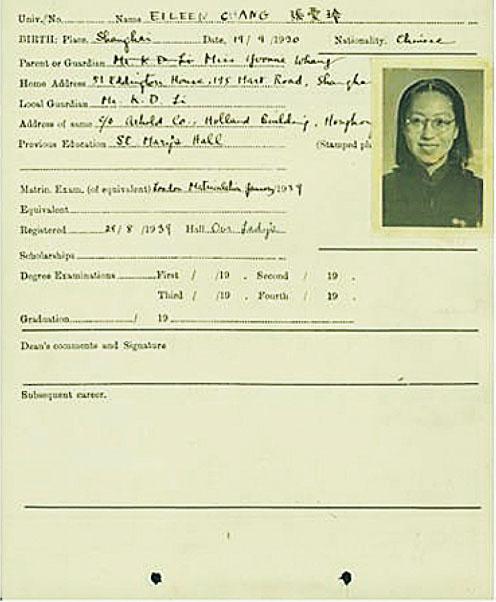 Univ./No. Name EILEEN CHANG 張愛玲
BIRTH: Place. Shanghai Date. 19/9/1920 Nationality. Chinese
Parent or Guardian Mr. K D Li Miss Yvonne Whang
Home Address 51 Eddington House, 195 Hart Road, Shangha
Local Guardian Mr. K. D. Li
Address of same c/o Arhold Co., Holland Building, Hongkon
Previous Education St. Mary's Hall (Stamped pl
Matric. Exam. (of equivalent) London Matriculation January/1939
Equivalent
Registered 29/8/1939 Hall Our Lady's
Scholarships
Degree Examinations First / /19 . Second / 19 .
Third / /19 . Fourth / 19 .
Graduation / 19
Dean's comments and Signature
Subsequent career.